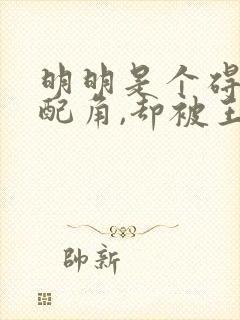 明明是个碍
配角,却被主
帥新